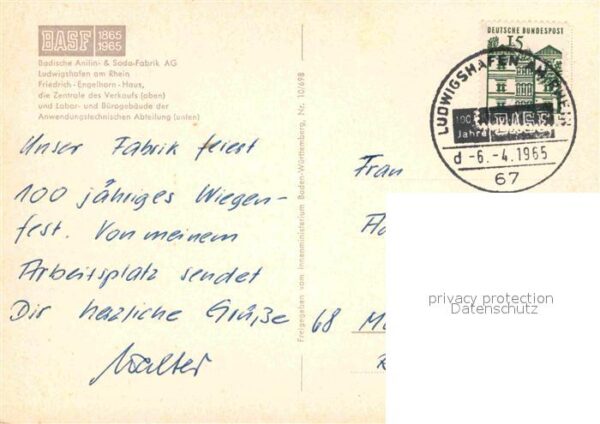 BASF 1865 1965
Badische Anilin- & Soda-Fabrik AG
Ludwigshafen am Rhein
Friedrich-Engelhorn-Haus,
die Zentrale des Verkaufs (oben)
und Labor- und Bürogebäude der
Anwendungstechnischen Abteilung (unten)
Unser Fabrik feiert
100 jähriges Wiegen-
fest. Von meinem
Arbeitsplatz sendet
Dir herzliche Grüße
Walter
Freigegeben vom Innenministerium Baden-Württemberg, Nr. 10/698
DEUTSCHE BUNDESPOST
15
LUDWIGSHAFEN AM RHEIN
100 Jahre BASF
d -6.-4.1965
67
Frau
68
privacy protection
Datenschutz